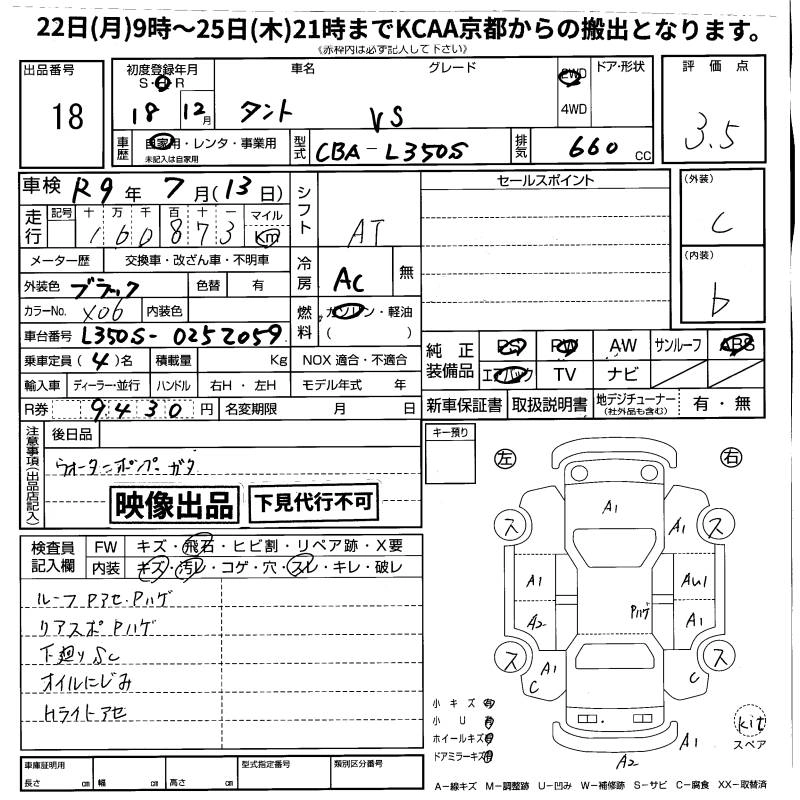 22日(月)9時～25日(木)21時までKCAA京都からの搬出となります。
《赤枠内は必ず記入して下さい》
出品番号 初度登録年月 車名 グレード ドア・形状 評価点
S・H・R 2WD
18 18 12月 タント VS 4WD 3.5
車歴 自家用・レンタ・事業用 型式 CBA-L350S 排気 660 cc
未記入は自家用
車検 R9年 7月(13日) シフト AT セールスポイント (外装)
走行 記号 十 万 千 百 十 一 マイル C
1 6 0 8 7 3 Km
メーター歴 交換車・改ざん車・不明車 冷房 AC 無 (内装)
外装色 ブラック 色替 有 b
カラーNo. X06 内装色 燃料 ガソリン・軽油
車台番号 L350S-0252059 ( )
乗車定員(4)名 積載量 Kg NOX 適合・不適合 純正装備品 PS PW AW サンルーフ ABS
輸入車 ディーラー・並行 ハンドル 右H・左H モデル年式 年 エアバック TV ナビ
R券 9430円 名変期限 月 日 新車保証書 取扱説明書 地デジチューナー(社外品も含む) 有・無
注意事項(出品店記入) 後日品 キー預り
ウォーターポンプ ガタ 左 右
映像出品 下見代行不可
検査員記入欄 FW キズ・飛石・ヒビ割・リペア跡・X要
内装 キズ・汚レ・コゲ・穴・スレ・キレ・破レ
ルーフPアセ・Pハゲ
リアスポPハゲ
下廻りSC
オイルにじみ
Hライトアセ
A1
A1
ス ス
A1 AU1
Pハゲ
A2 A1
ス ス
A1
C C
小キズ 有
小U 有
ホイールキズ 有
ドアミラーキズ 有
A1
A2
kit
スペア
車庫証明用 型式指定番号 類別区分番号
長さ cm 幅 cm 高さ cm
A―線キズ M―調整跡 U―凹み W―補修跡 S―サビ C―腐食 XX―取替済